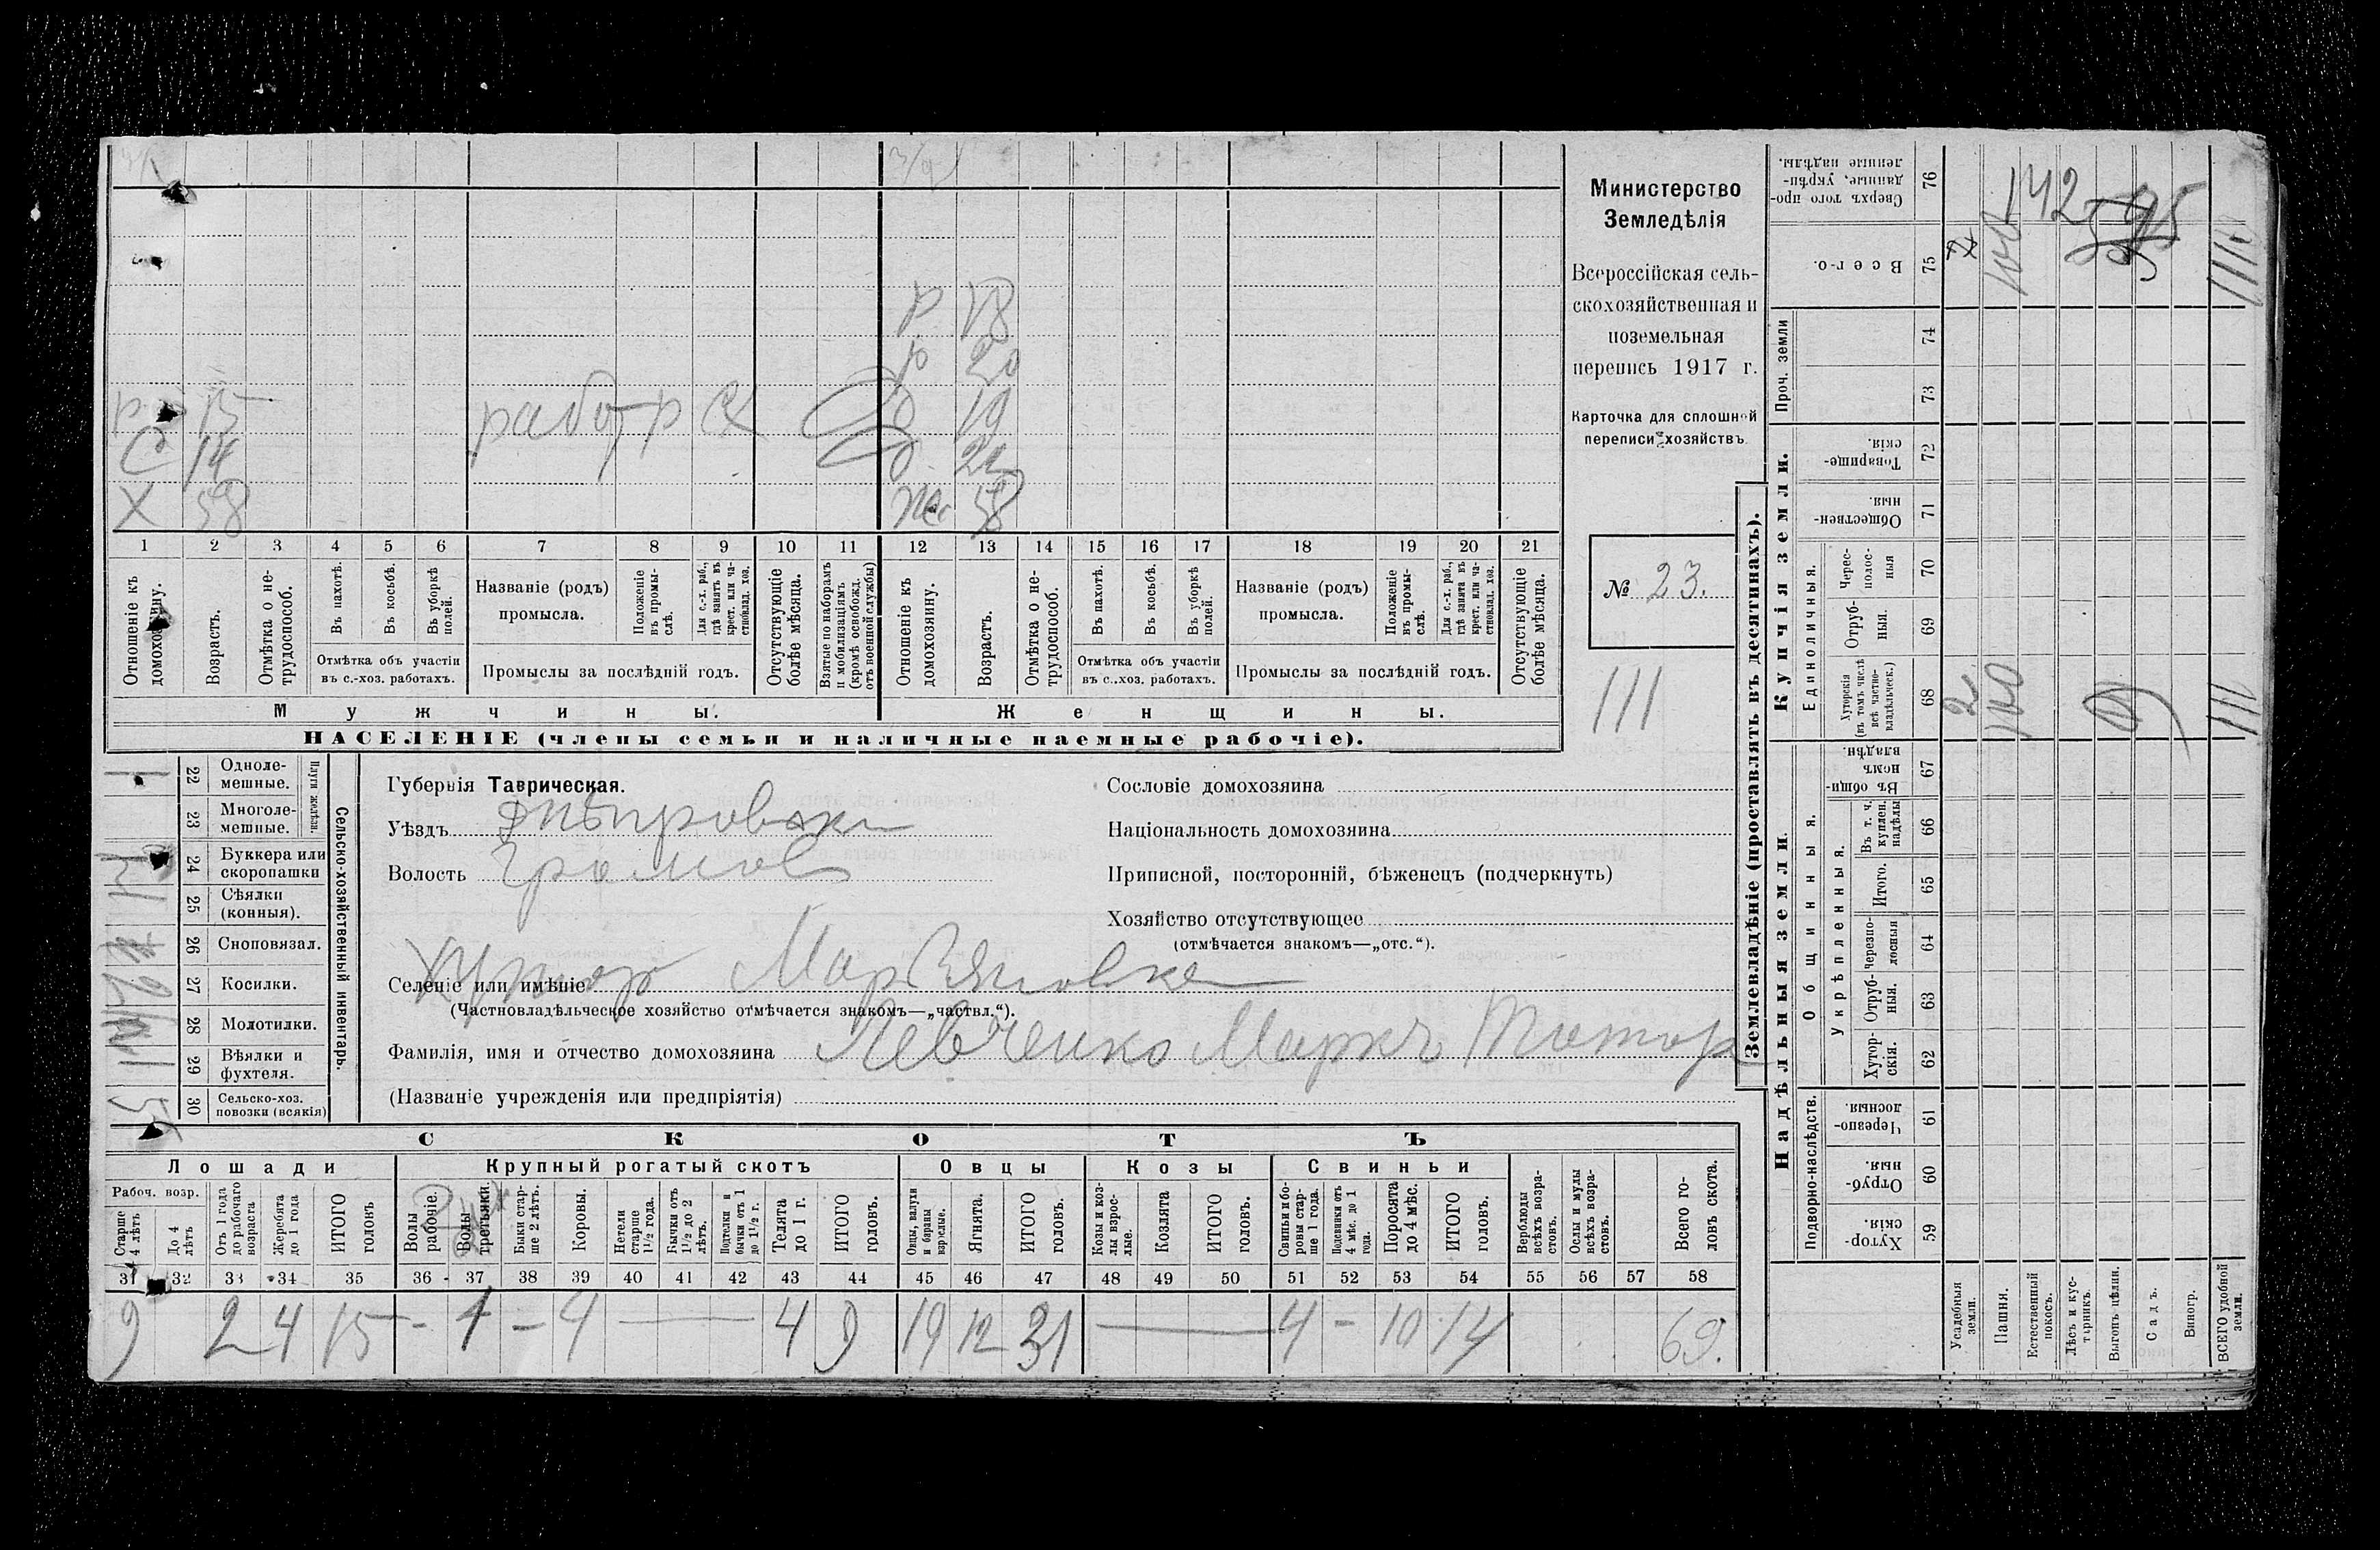 р 18
р 20
р 15 работ р сх д 19
с 14 д.
х 58 58
1 2 3 4 5 6 7 8 9 10 11 12 13 14 15 16 17 18 19 20 21
Отношеніе къ домохозяину.
Возрастъ.
Отмѣтка о нетрудоспособ.
Въ пахотѣ.
Въ косьбѣ.
Въ уборкѣ полей.
Отмѣтка объ участіи
въ с.-хоз. работахъ.
Названіе (родъ)
промысла.
Положеніе въ промыслѣ.
Для с.-х. раб., гдѣ занятъ въ крест. или частновлад. хоз.
Промыслы за послѣдній годъ.
Отсутствующіе болѣе мѣсяца.
Взятые по наборамъ и мобилизаціямъ (кромѣ освобожд. отъ военной службы)
Отношеніе къ домохозяину.
Возрастъ.
Отмѣтка о нетрудоспособ.
Въ пахотѣ.
Въ косьбѣ.
Въ уборкѣ полей.
Отмѣтка объ участіи
въ с.-хоз. работахъ.
Названіе (родъ)
промысла.
Положеніе въ промыслѣ.
Для с.-х. раб., гдѣ занята въ крест. или частновлад. хоз.
Промыслы за послѣдній годъ.
Отсутствующіе болѣе мѣсяца.
Мужчины. Женщины.
НАСЕЛЕНІЕ (члены семьи и наличные наемные рабочіе).
Министерство
Земледѣлія
Всероссійская сель-
скохозяйственная и
поземельная
перепись 1917 г.
Карточка для сплошной
переписи хозяйствъ.
№ 23.
111
22 Однолемешные.
23 Многолемешные.
Плуги желѣзн.
24 Буккера или скоропашки
25 Сѣялки (конныя).
26 Сноповязал.
27 Косилки.
28 Молотилки.
29 Вѣялки и фухтеля.
30 Сельско-хоз. повозки (всякія)
Сельско-хозяйственный инвентарь.
Губернія Таврическая.
Уѣздъ Днѣпровски
Волость Громов
Селеніе или имѣніе Хутор Марьяновка
(Частновладѣльческое хозяйство отмѣчается знакомъ—„частвл.“).
Фамилія, имя и отчество домохозяина Левченко Маркъ Титор
(Названіе учрежденія или предпріятія)
Сословіе домохозяина
Національность домохозяина
Приписной, посторонній, бѣженецъ (подчеркнуть)
Хозяйство отсутствующее
(отмѣчается знакомъ—„отс.“).
СКОТЪ
Лошади Крупный рогатый скотъ Овцы Козы Свиньи
Рабоч. возр.
Старше 4 лѣтъ
До 4 лѣтъ
Отъ 1 года до рабочаго возраста
Жеребята до 1 года
ИТОГО головъ
Волы рабочіе.
Волы третьяки.
Быки старше 2 лѣтъ.
Коровы.
Нетели старше 1½ года.
Бычки отъ 1½ до 2 лѣтъ.
Подтелки и бычки отъ 1 до 1½ г.
Телята до 1 г.
ИТОГО головъ.
Овцы, валухи и бараны взрослые.
Ягнята.
ИТОГО головъ.
Козы и козлы взрослые.
Козлята
ИТОГО головъ.
Свиньи и боровы старше 1 года.
Подсвинки отъ 4 мѣс. до 1 года.
Поросята до 4 мѣс.
ИТОГО головъ.
Верблюды всѣхъ возрастовъ.
Ослы и мулы всѣхъ возрастовъ.
Всего головъ скота.
31 32 33 34 35 36 37 38 39 40 41 42 43 44 45 46 47 48 49 50 51 52 53 54 55 56 57 58
9 2 4 15 - 1 - 4 — 4 9 19 12 31 — 4 - 10 14 69.
Землевладѣніе (проставлять въ десятинахъ).
Надѣльныя земли. Купчія земли.
Подворно-наслѣдств.
Общинныя.
Укрѣпленныя.
Единоличныя.
Проч. земли
59 Хуторскія.
60 Отрубныя.
61 Черезполосныя.
62 Хуторскія.
63 Отрубныя.
64 Черезполосныя
65 Итого.
66 Въ т. ч. куплен. надѣлы
67 Въ общинномъ владѣн.
68 Хуторскія (въ томъ числѣ всѣ частновладѣльческ.)
69 Отрубныя.
70 Чересполосныя
71 Общественныя.
72 Товарищескія.
73
74
75 Всего.
76 Сверхъ того проданные, укрѣпленные надѣлы.
Усадебныя земли.
Пашня.
Естественный покосъ.
Лѣсъ и кустарникъ.
Выгонъ цѣлин.
Садъ.
Виногр.
ВСЕГО удобной земли.
2 100 9 111
142